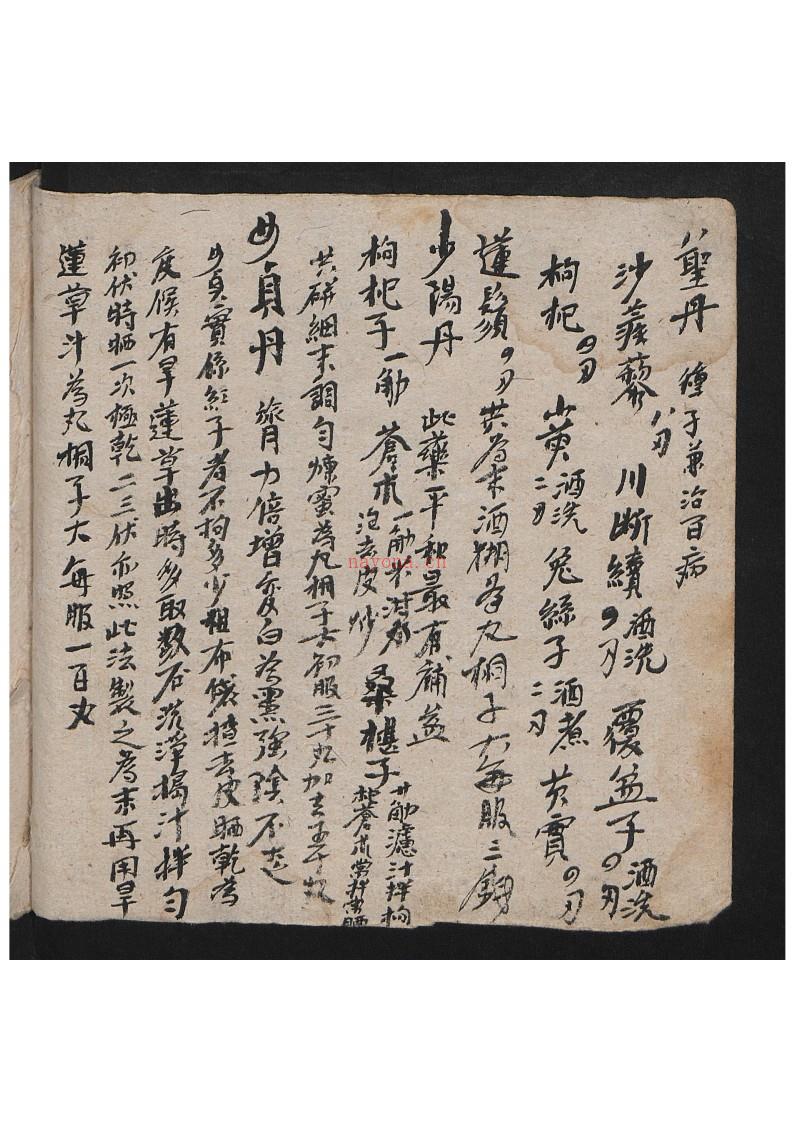 八聖丹 種子兼治百病
沙蒺藜八刄 川斷續酒洗〇刄 覆盆子酒洗〇刄
枸杞〇刄 山萸酒洗二刄 兔絲子酒煮二刄 芡實〇刄
蓮鬚〇刄 共為末酒糊為丸桐子大每服三錢
少陽丹 此藥平和最有補益
枸杞子一觔 蒼朮一觔米泔 泡去皮炒 桑椹子廿觔濾汁拌枸杞蒼朮常拌常晒
共研細末調勻煉蜜為丸桐子大初服三十丸加至五十丸
女貞丹 膂力倍增變白為黑強陰不走
女貞實 子者不拘多少粗布袋揸去皮晒乾為
度候有旱蓮草出時多取数石洗淨搗汁拌勻
初伏時晒一次極乾二三伏亦照此法製之為末再用旱
蓮草汁為丸桐子大每服一百丸
nayona.cn